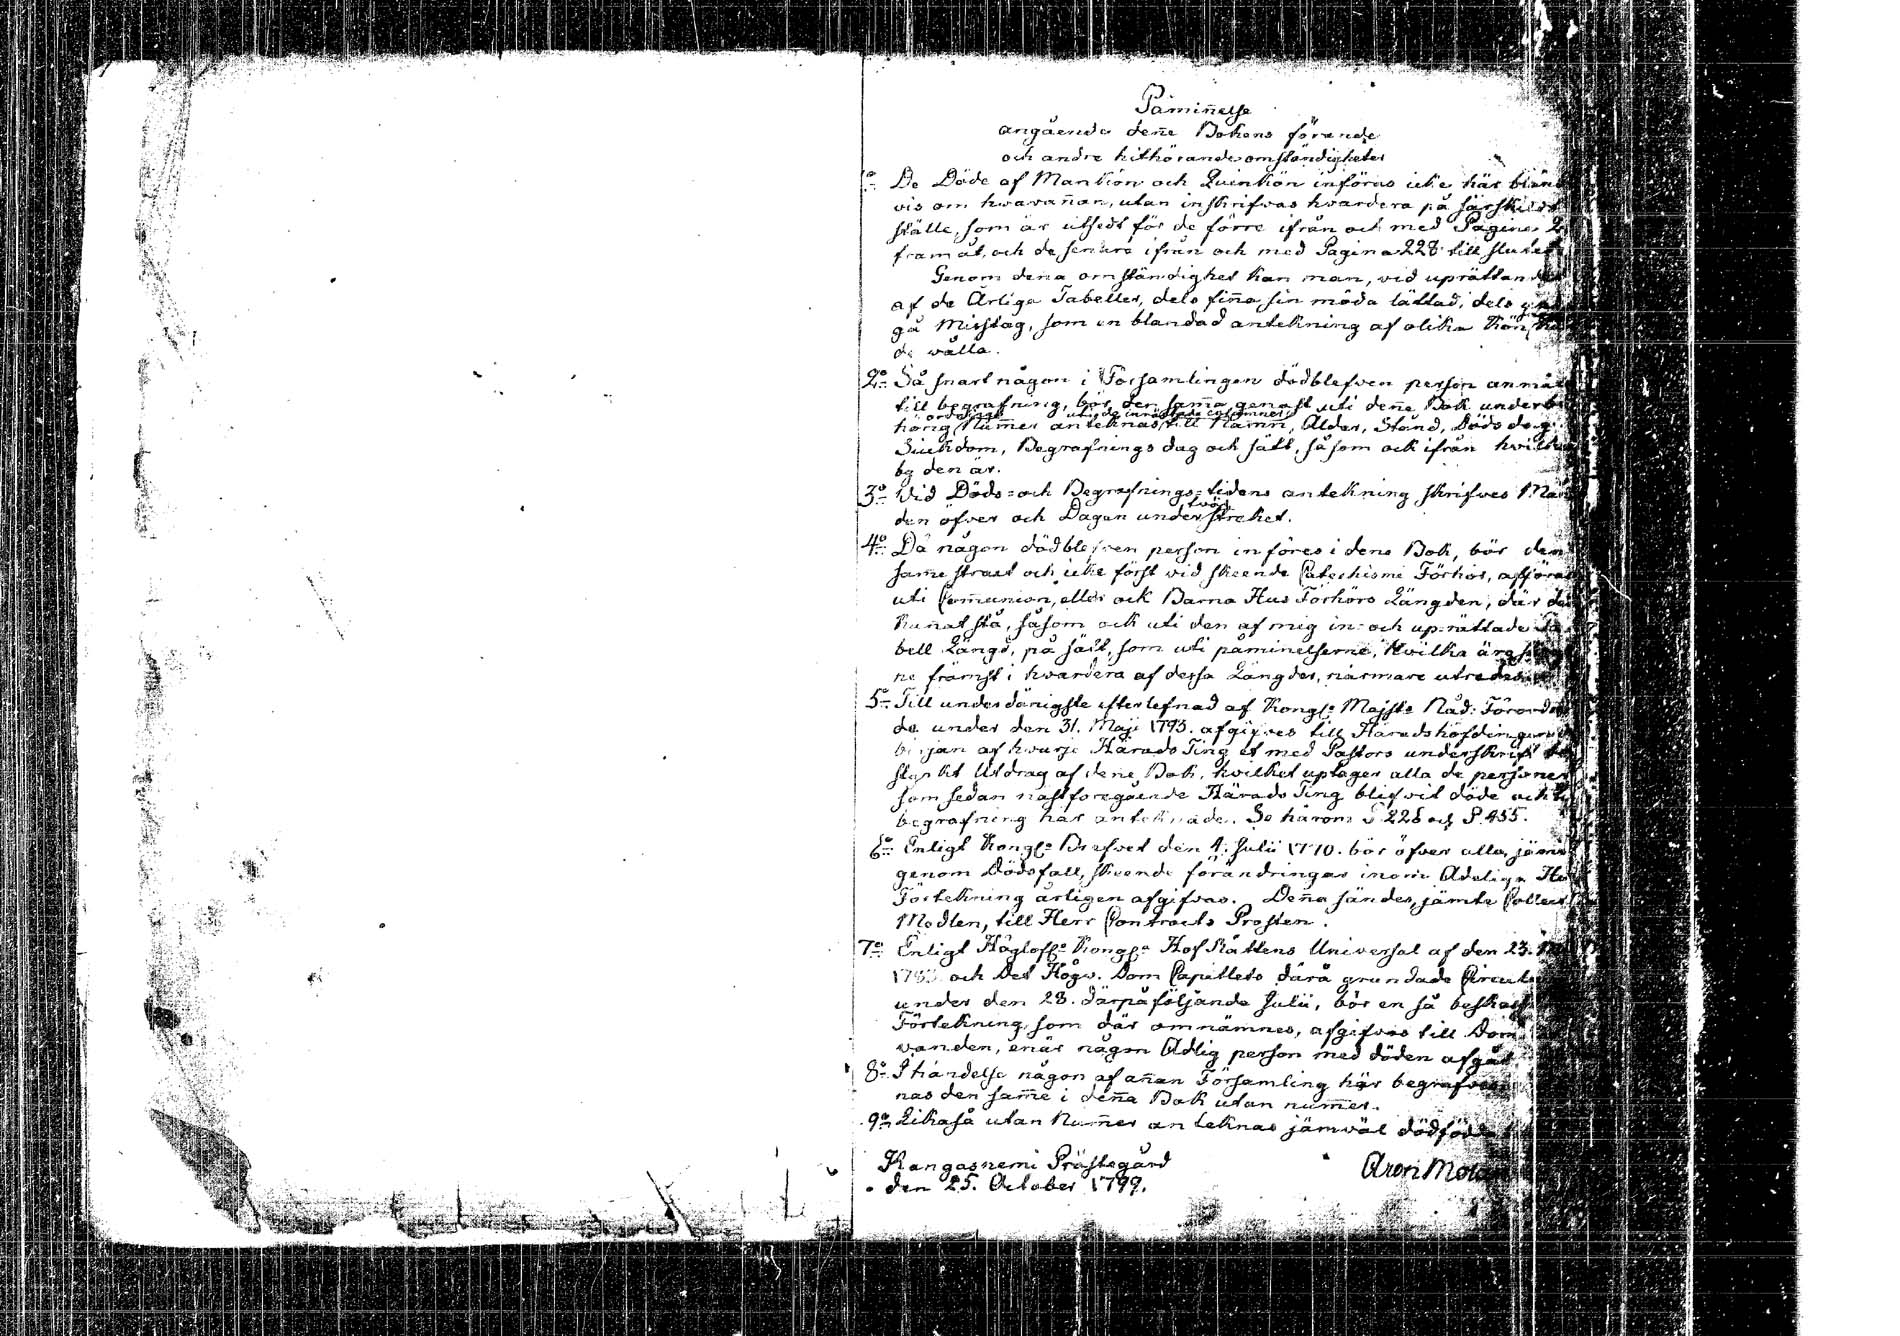 Påmiñelse
angående deñe Bokens förande
och andre hithörande omständigheter
De Döde af Mankön och Quinkön införas icke här blan
vis om hwarañan, utan inskrifvas hvardera på särskildt
ställe, som är utsedt för de förre ifrån och med Pagina 2
framåt, och de senare ifrån och med Pagina 228 till slutet
Genom dena omständighet kan man, vid uprättandet
af de Årliga Tabeller, dels fiña sin möda lättad, dels
gå Misstag, som en blandad antekning af olika Kön
de vålla.
2o Så snart någon i Församlingen dödblefven person anmäl
till begrafning, bör den sam̃a genast uti deñe Bok under
ordentligt uti de inrättade columner
hörig Num̃er anteknas till Namn, Ålder, Stånd, Döds dag
Siukdom, Begrafnings dag och sätt, såsom ock ifrån hvilke
by den är.
3o Vid Döds- och Begrafnings-tidens antekning skrifves Må
den öfver och Dagen under tvär
strecket.
4o Då någon dödblefven person införes i dene Bok, bör den
sam̃e strax och icke först vid skeende Catechismi Förhör, afföras
uti Com̃union, eller ock Barna Hus Förhörs Längden, där de
kuñat stå, såsom ock uti den af mig in- och up-rättade Ta
bell Längd, på sätt, som uti påminelserne, hvilka äro
ne främst i hvardera af dessa Längder, närmare utredes
5o Till underdånigste efterlefnad af Kongl. Majsts Nåd: Förord
de under den 31. Maji 1793. afgifves till Häradshöfdingen
början af hvarje Härads Ting et med Pastors underskrift
styrkt Utdrag af dene Bok, hvilket uptager alla de personer
som sedan nästforegående Härads Ting blifvit döde och
begrafning här anteknade. Se härom P. 226 och P. 455.
6o Enligt Kongl. Brefvet den 4. Julii 1770. bör öfver alla,
genom Dödsfall, skeende förändringar inom Adeliga
Förtekning årligen afgifvas. Deña sändes, jämte Collect
Medlen, till Herr Contracts Prosten.
7o Enligt Höglofl. Kongl. Hof Rättens Universal af den 23.
och Det Högv. Dom Capitlets därå grundade Circula
under den 28. därpåföljande Julii, bör en så beskaff
Förtekning, som där omnämnes, afgifvas till Dom
vanden, enär någon Adlig person med döden afgår
8o I händelse någon af añan Församling här begrafves
nas den sam̃e i deña Bok utan num̃er.
9o Likaså utan Num̃er anteknas jämväl dödföd
Kangasnemi Prästegård
den 25. October 1799.
Aron